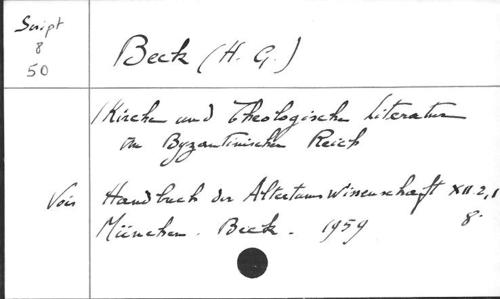 Script
8
50
Beck (H. G.)
Kirche und Theologische Literatur
im Byzantinischen Reich
Voir Handbuch der Altertumswissenschaft XII. 2, 1
München. Beck. 1959 8°